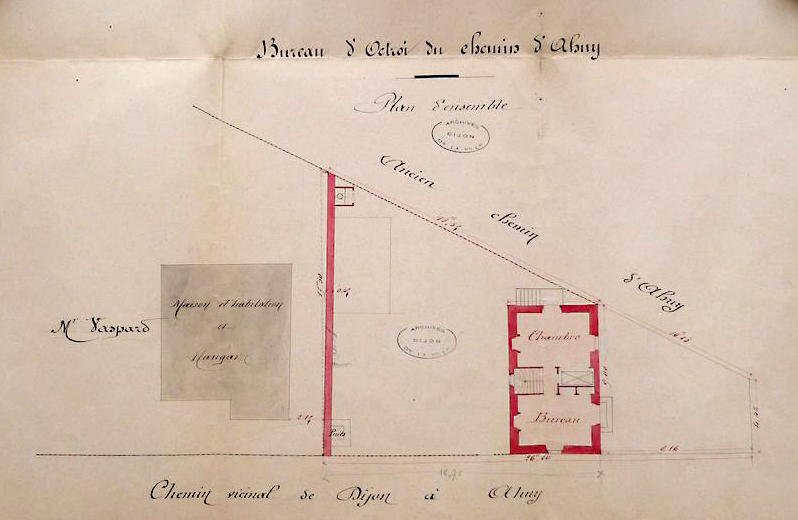 Bureau d'Octroi du chemin d'Ahuy
Plan d'ensemble
ARCHIVES
DIJON
DE LA VILLE
Ancien chemin d'Ahuy
Maison d'habitation
et
Hangar
Mr Gaspard
ARCHIVES
DIJON
DE LA VILLE
Chambre
Bureau
Puits
18,75
Chemin vicinal de Dijon à Ahuy